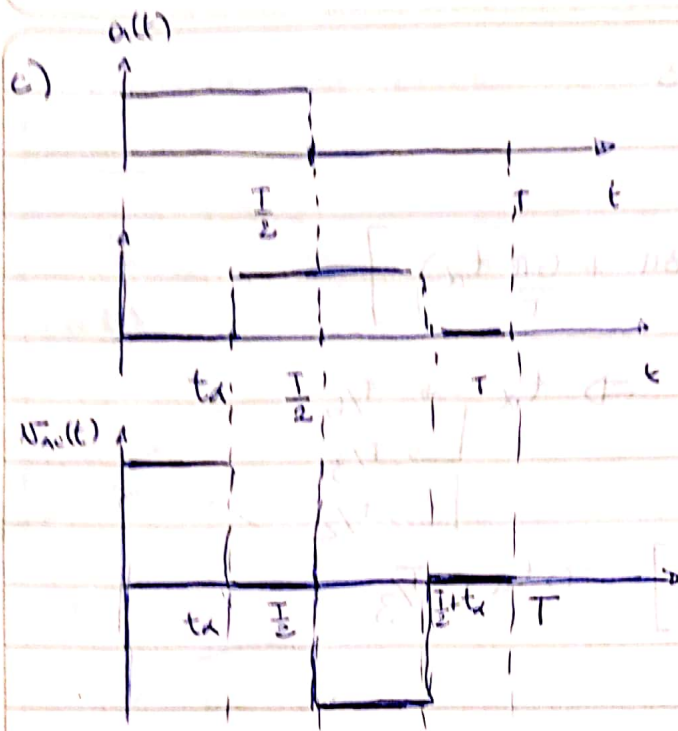 a(t)
c)
T/2
T
t
tα
T/2
T
t
Vac(t)
tα
T/2
T/2+tα
T